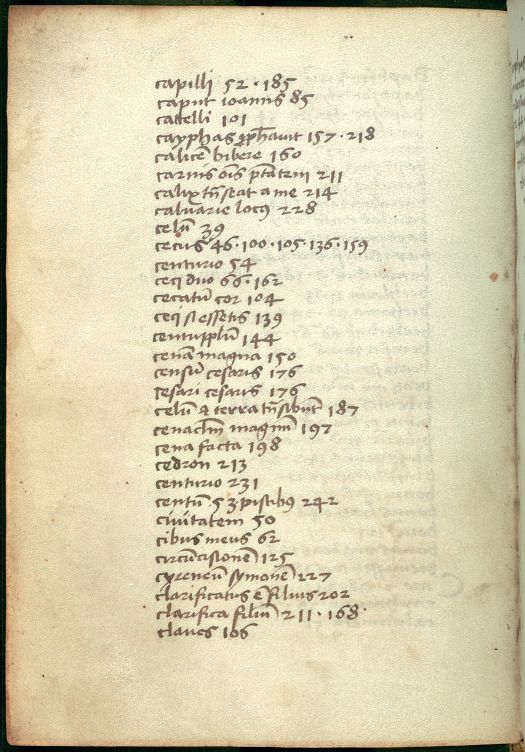 capilli 52 · 185
caput ioannis 85
catelli 101
cayphas ꝓph̄auit 157 · 218
calicē bibere 160
carnis oīs ptātem 211
calix trn̄seat a me 214
caluarie locꝰ 228
celū 39
cecus 46 · 100 · 105 · 136 · 159
centurio 54
ceci duo 66 · 162
cecatū cor 104
ceci si essetis 139
centuplū 144
cenā magna 150
censū cesaris 176
cesari cesaris 176
celū & terra trn̄sibūt 187
cenaclm̄ magnū 197
cena facta 198
cedron 213
centurio 231
centū 53 piscibꝰ 242
ciuitatem 50
cibus meus 62
circūcisionē 125
cyreneū symonē 227
clarificatus ē filius 202
clarifica filiū 211 · 168
claues 106